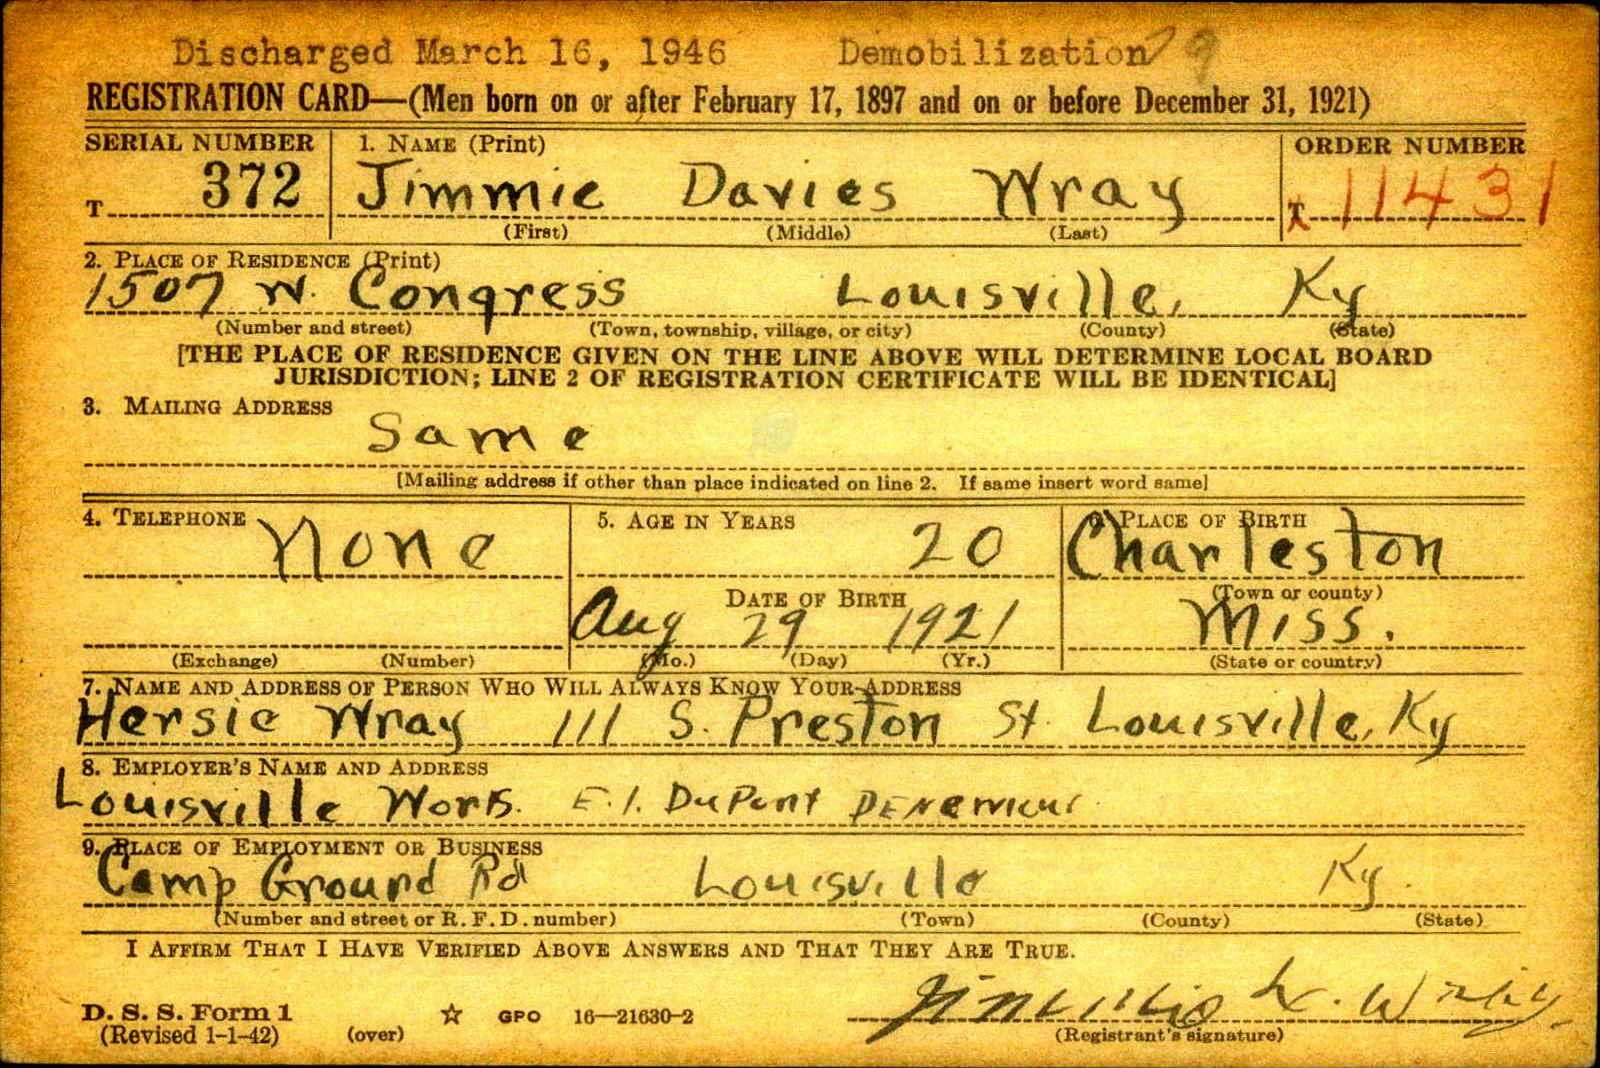 Discharged March 16, 1946 Demobilization 79
REGISTRATION CARD—(Men born on or after February 17, 1897 and on or before December 31, 1921)
SERIAL NUMBER 1. NAME (Print) ORDER NUMBER
T 372 Jimmie Davies Wray T 11431
(First) (Middle) (Last)
2. PLACE OF RESIDENCE (Print)
1507 W. Congress Louisville, Ky
(Number and street) (Town, township, village, or city) (County) (State)
[THE PLACE OF RESIDENCE GIVEN ON THE LINE ABOVE WILL DETERMINE LOCAL BOARD
JURISDICTION; LINE 2 OF REGISTRATION CERTIFICATE WILL BE IDENTICAL]
3. MAILING ADDRESS
Same
[Mailing address if other than place indicated on line 2. If same insert word same]
4. TELEPHONE 5. AGE IN YEARS 6. PLACE OF BIRTH
None 20 Charleston
DATE OF BIRTH (Town or county)
Aug 29 1921 Miss.
(Exchange) (Number) (Mo.) (Day) (Yr.) (State or country)
7. NAME AND ADDRESS OF PERSON WHO WILL ALWAYS KNOW YOUR ADDRESS
Hersie Wray 111 S. Preston St. Louisville, Ky
8. EMPLOYER'S NAME AND ADDRESS
Louisville Works. E.I. DuPont
9. PLACE OF EMPLOYMENT OR BUSINESS
Camp Ground Rd Louisville Ky.
(Number and street or R. F. D. number) (Town) (County) (State)
I AFFIRM THAT I HAVE VERIFIED ABOVE ANSWERS AND THAT THEY ARE TRUE.
D. S. S. Form 1 GPO 16—21630-2
(Revised 1-1-42) (over) (Registrant's signature)